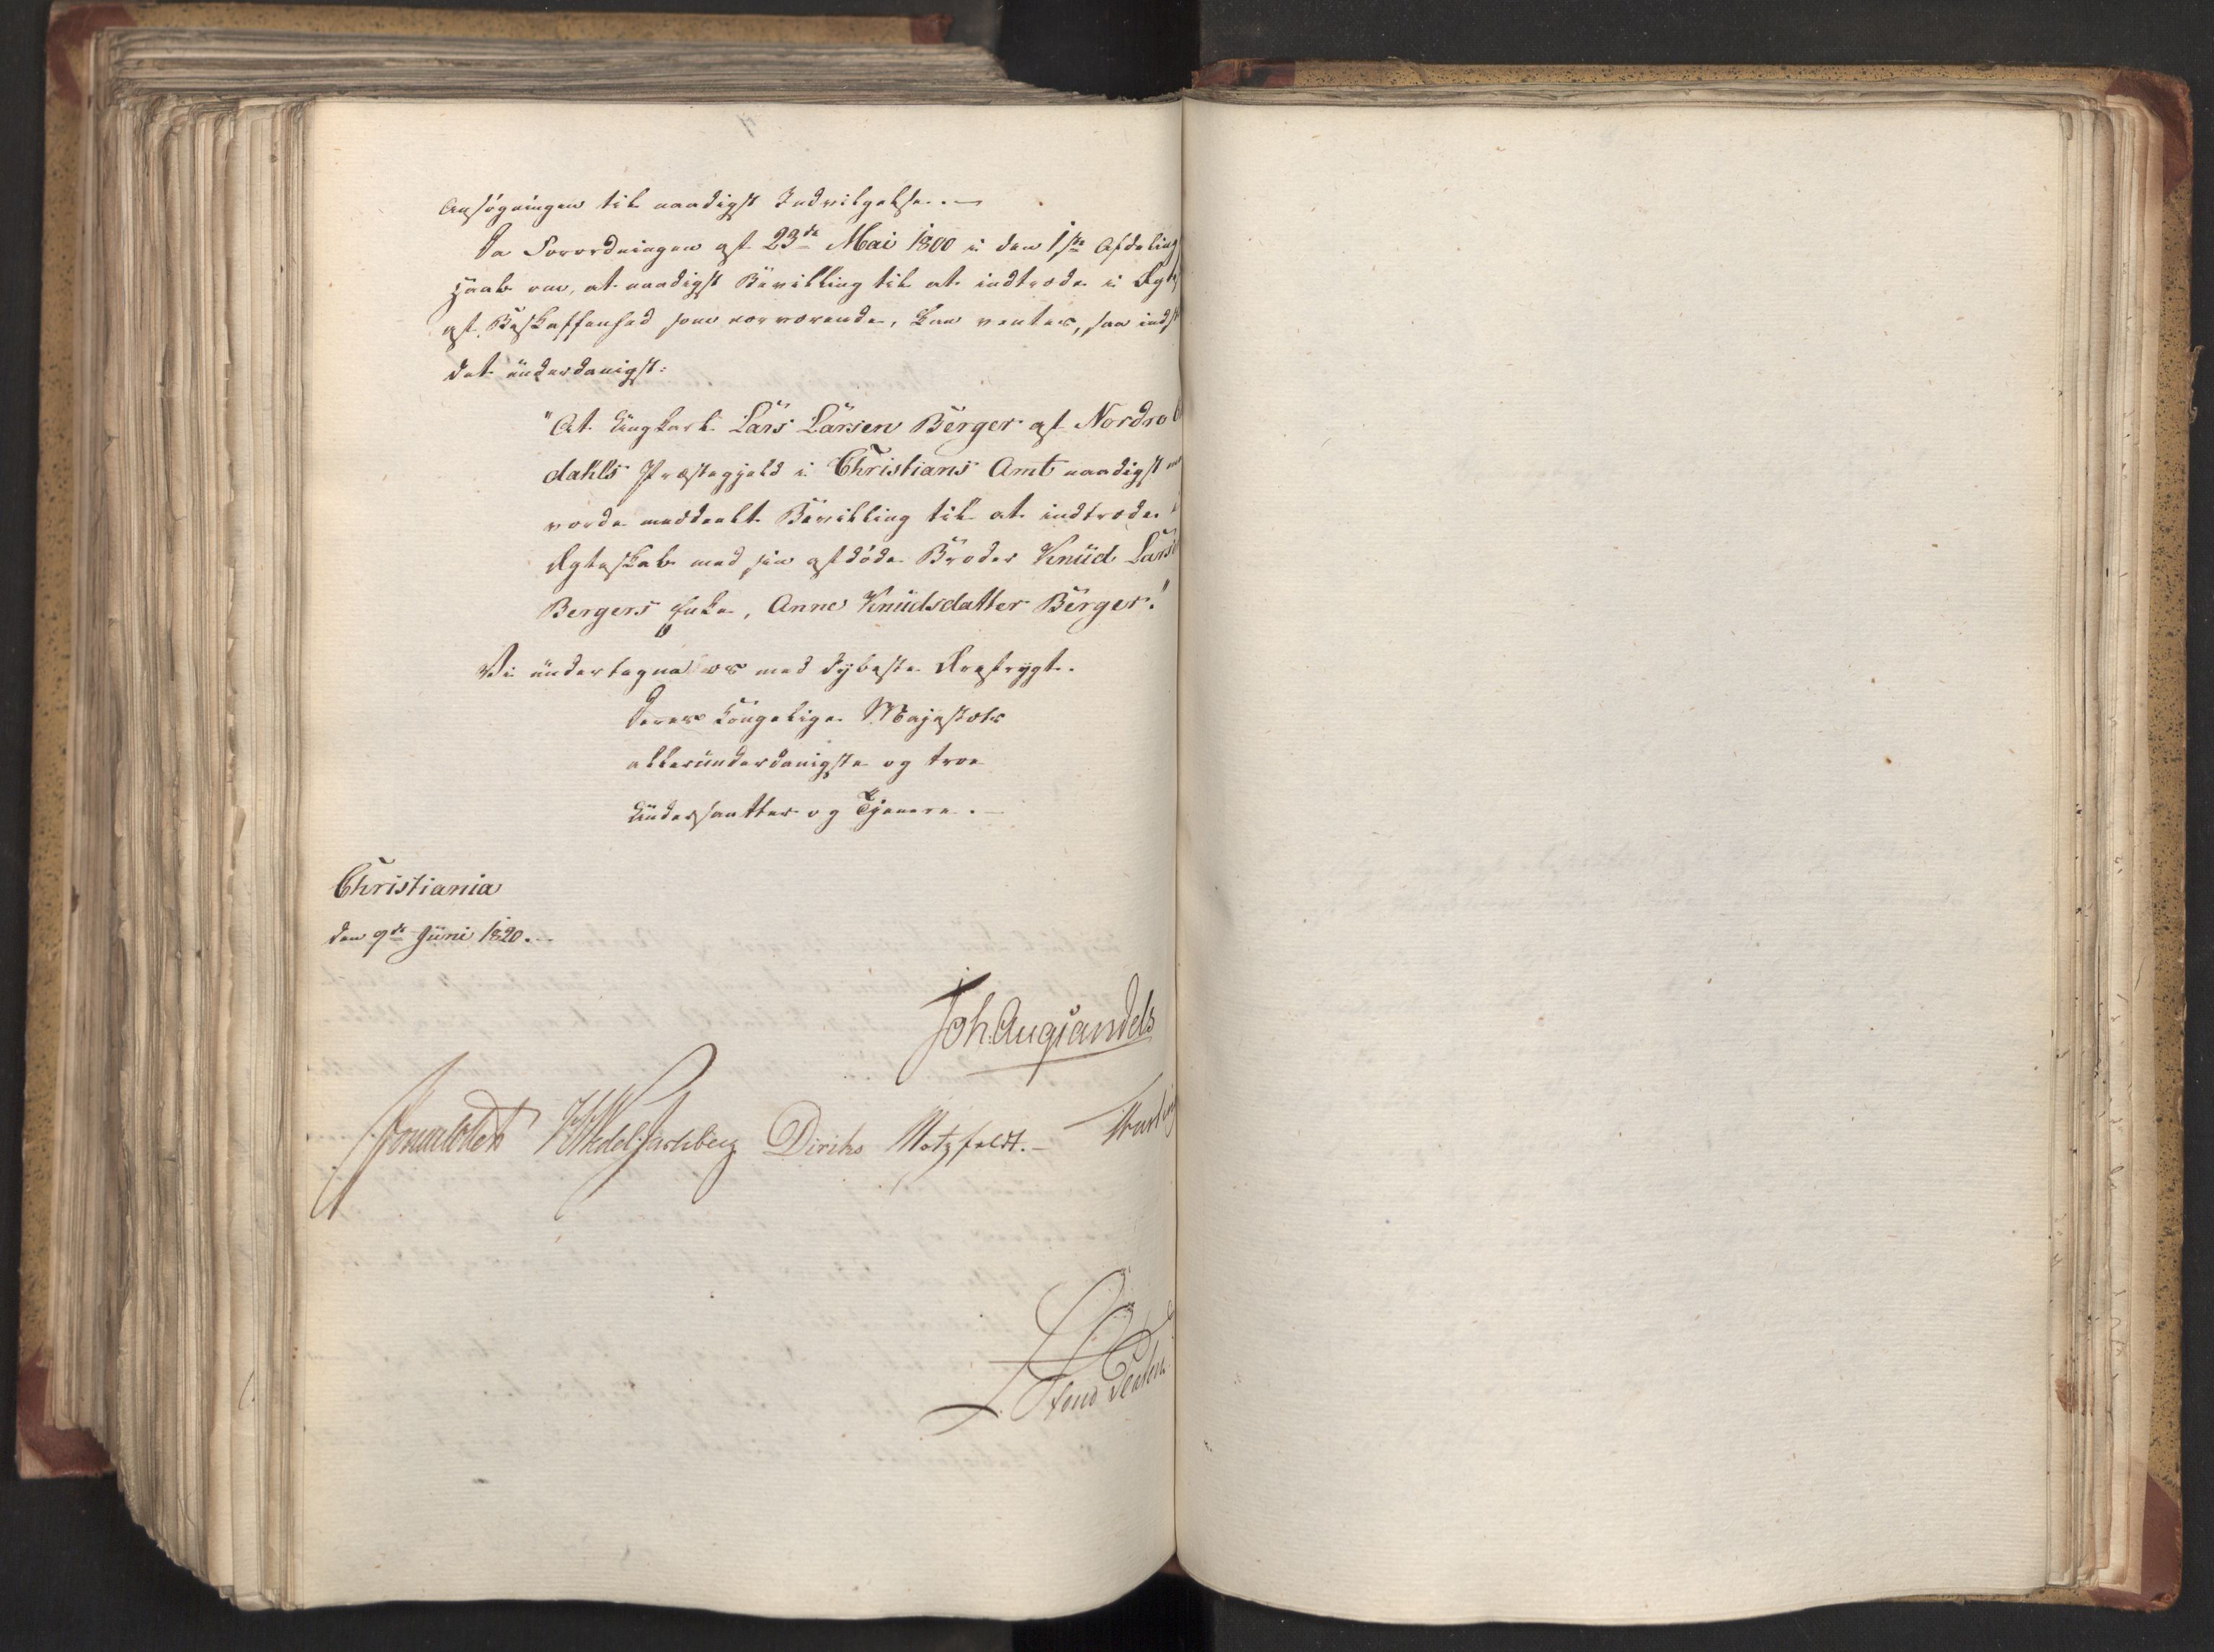 Ansøgningen til naadigst Indvilgelse. —
Da Forordningen af 23de Mai 1800 i den 1ste Afdeling
Haab om, at naadigst Bevilling til at indtræde i Ægte
af Beskaffenhed som nærværende, kan ventes, saa indst
det underdanigst:
"At Ungkarl Lars Larsen Berger af Nordre
dahls Præstegjeld i Christians Amt naadigst
vorde meddeelt Bevilling til at indtræde i
Ægteskab med sin afdøde Broder Knud Lars
Bergers Enke, Anne Knudsdatter Berger."
Vi undertegne os med dybeste Ærefrygt.
Deres Kongelige Majestæts
allerunderdanigste og troe
Undersaatter og Tjenere. —
Christiania
den 9de Juni 1820. —
Joh. Aug Sandels
Sommerhielm HWedelJarlsberg Diriks Motzfeldt. —